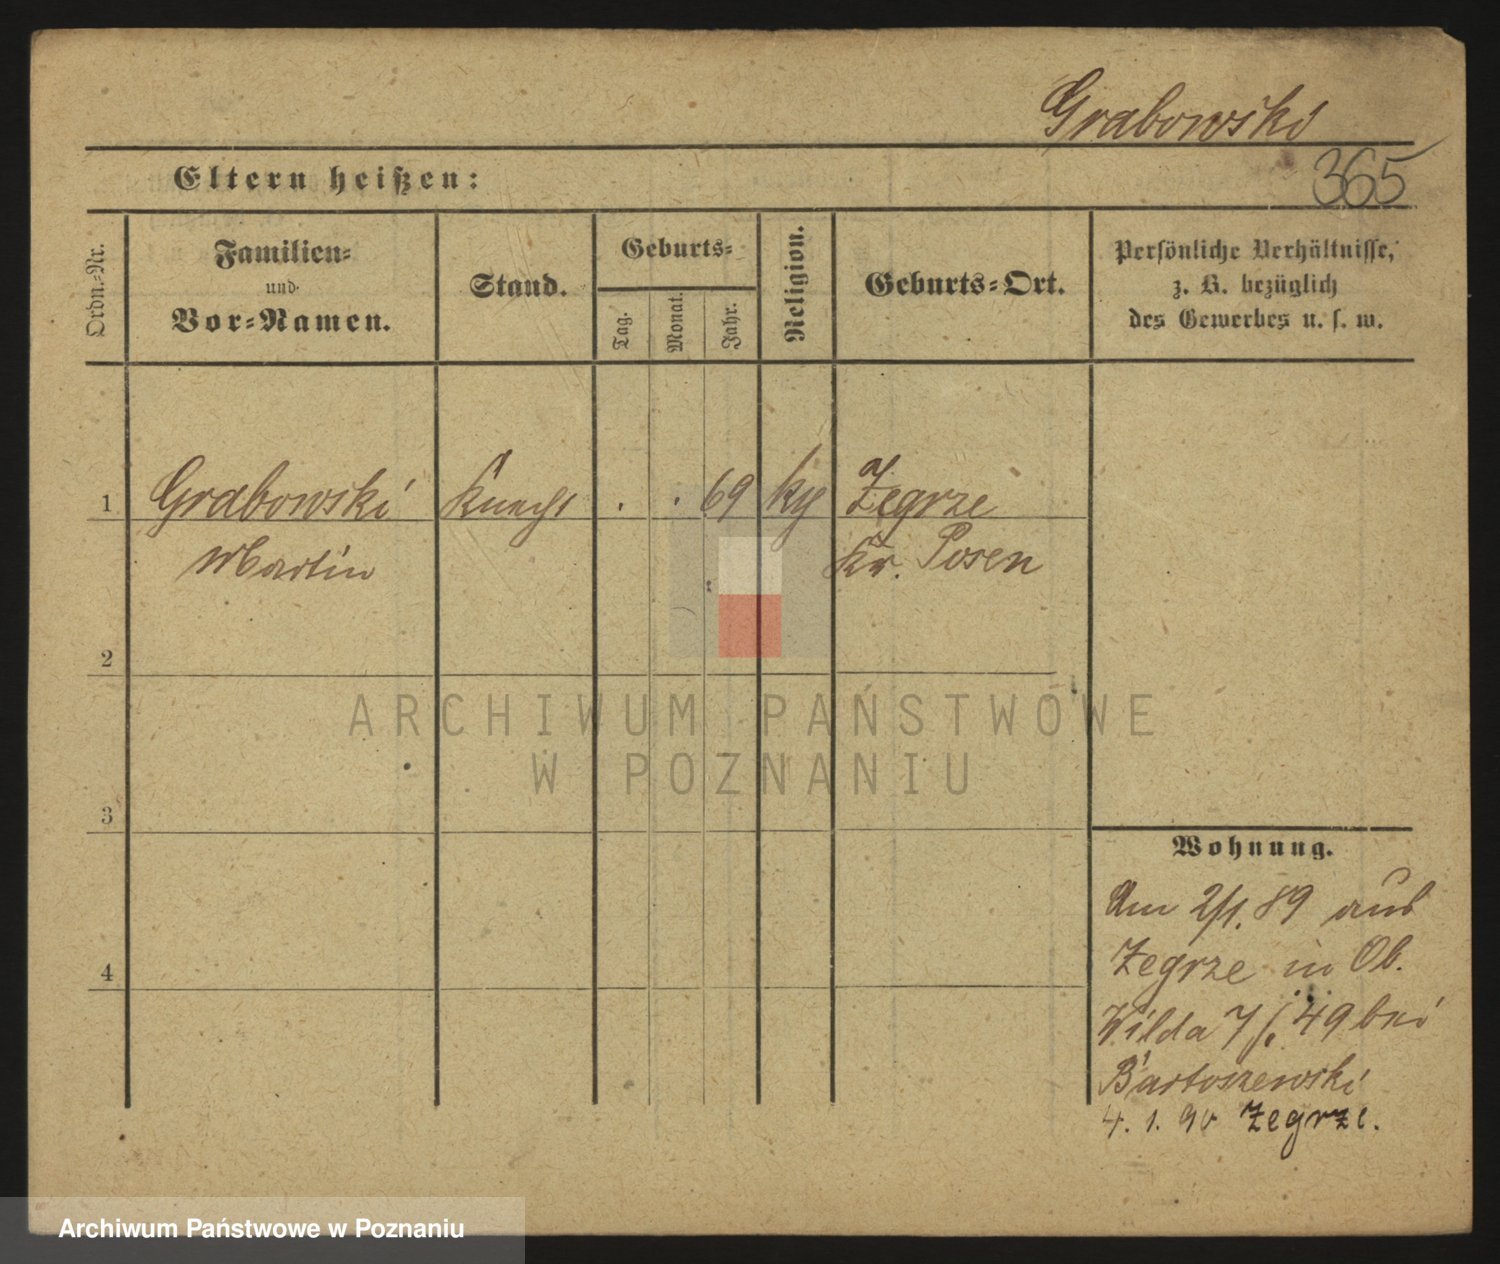 Grabowski
Eltern heißen:
365
Ordn.-Nr.
Familien-
und
Vor-Namen.
Stand.
Geburts-
Tag.
Monat.
Jahr.
Religion.
Geburts-Ort.
Persönliche Verhältnisse,
z. B. bezüglich
des Gewerbes u. s. w.
1
Grabowski
Knecht
.
.
69
Zegrze
Martin
Kr. Posen
2
ARCHIWUM PAŃSTWOWE
W POZNANIU
3
4
Wohnung.
Am 2/1.89 aus
Zegrze in Ob.
Wilda 49 bei
Bartoszewski
4. 1. 90 Zegrze.
Archiwum Państwowe w Poznaniu